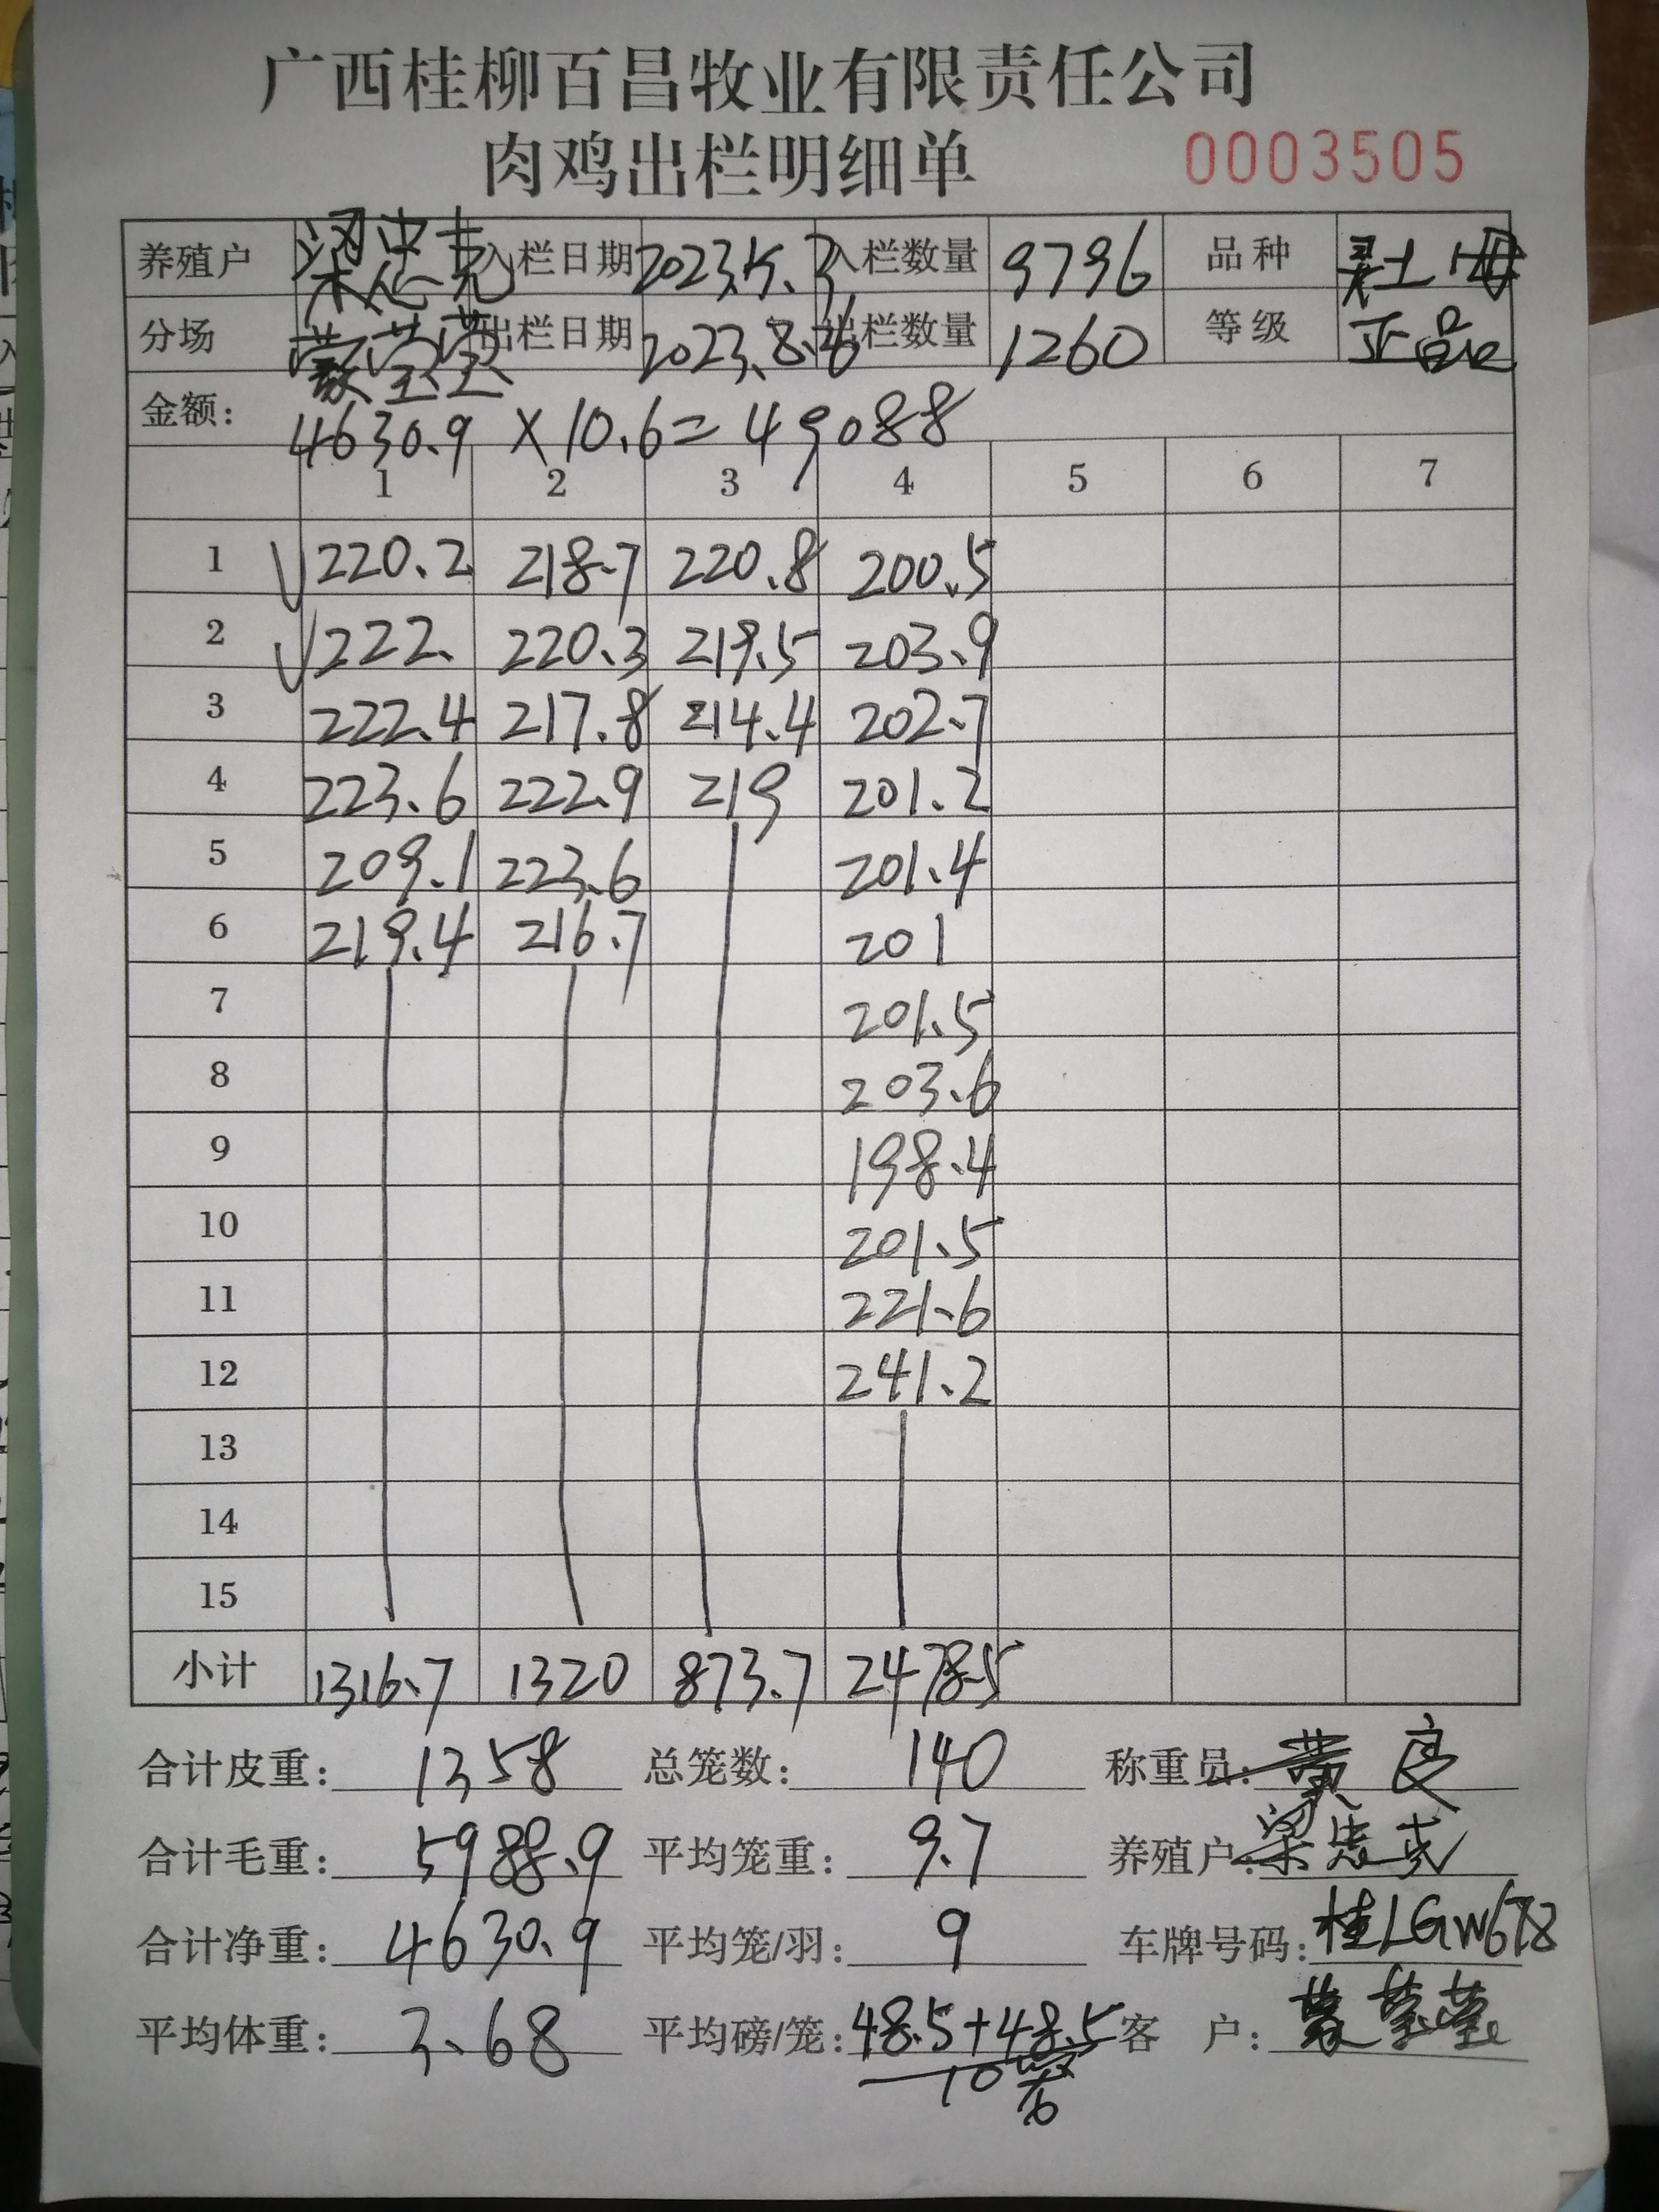 广西桂柳百昌牧业有限责任公司
肉鸡出栏明细单 0003505
养殖户 梁忠克 入栏日期 2023.5.3 入栏数量 9796 品种 土母
分场 蒙莹莹 出栏日期 2023.8.26 出栏数量 1260 等级 正品
金额: 4630.9 × 10.6 = 49088
1 2 3 4 5 6 7
1 √220.2 218.7 220.8 200.5
2 √222. 220.3 219.5 203.9
3 222.4 217.8 214.4 202.7
4 223.6 222.9 219 201.2
5 209.1 223.6 201.4
6 219.4 216.7 201
7 201.5
8 203.6
9 198.4
10 201.5
11 221.6
12 241.2
13
14
15
小计 1316.7 1320 873.7 2478.5
合计皮重: 1358 总笼数: 140 称重员: 黄良
合计毛重: 5988.9 平均笼重: 9.7 养殖户: 梁忠克
合计净重: 4630.9 平均笼/羽: 9 车牌号码: 桂LGW678
平均体重: 3.68 平均磅/笼: 48.5+48.5 客户: 蒙莹莹
10